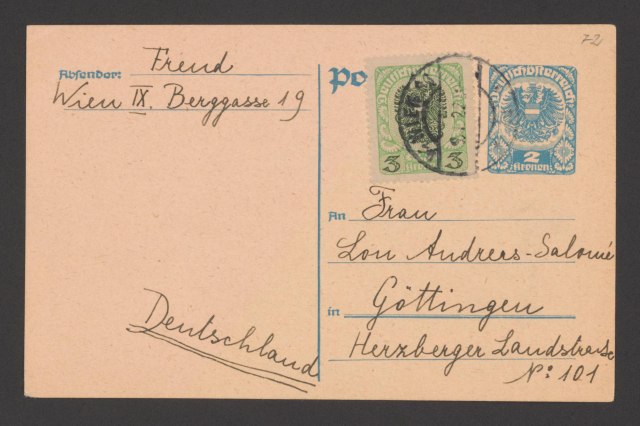 72
Absender: Freud
Wien IX. Berggasse 19
Deutschland
Deutschösterreich
3 3
Deutschösterreich
2
Kronen
An Frau
Lou Andreas-Salomé
in Göttingen
Herzberger Landstrasse
No: 101